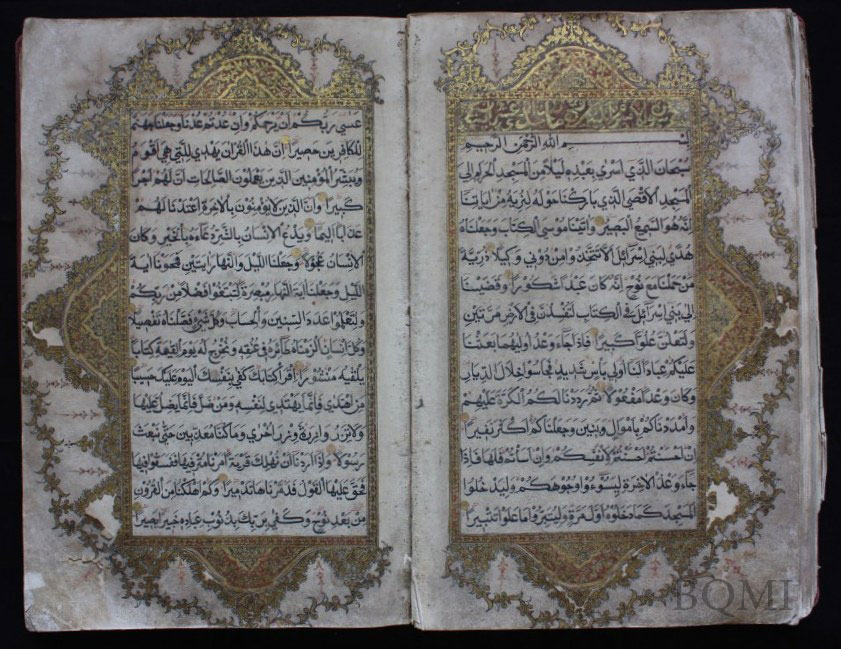 بسم الله الرحمن الرحيم
سبحان الذي اسرى بعبده ليلا من المسجد الحرام الى
المسجد الاقصى الذي باركنا حوله لنريه من اياتنا
انه هو السميع البصير واتينا موسى الكتاب وجعلناه
هدى لبني اسرائل الا تتخذوا من دوني وكيلا ذرية
من حملنا مع نوح انه كان عبدا شكورا وقضينا
الى بني اسرائل في الكتاب لتفسدن في الارض مرتين
ولتعلن علوا كبيرا فاذا جاء وعد اوليهما بعثنا
عليكم عبادا لنا اولي بأس شديد فجاسوا خلال الديار
وكان وعدا مفعولا ثم رددنا لكم الكرة عليهم
وامددناكم باموال وبنين وجعلناكم اكثر نفيرا
ان احسنتم احسنتم لانفسكم وان اسأتم فلها فاذا
جاء وعد الاخرة ليسوءوا وجوهكم وليدخلوا
المسجد كما دخلوه اول مرة وليتبروا ما علوا تتبيرا
عسى ربكم ان يرحمكم وان عدتم عدنا وجعلنا جهنم
للكافرين حصيرا ان هذا القران يهدي للتي هي اقوم
ويبشر المؤمنين الذين يعملون الصالحات ان لهم اجرا
كبيرا وان الذين لا يؤمنون بالاخرة اعتدنا لهم
عذابا اليما ويدع الانسان بالشر دعاءه بالخير وكان
الانسان عجولا وجعلنا الليل والنهار ايتين فمحونا اية
الليل وجعلنا اية النهار مبصرة لتبتغوا فضلا من ربكم
ولتعلموا عدد السنين والحساب وكل شئ فصلناه تفصيلا
وكل انسان الزمناه طائره في عنقه ونخرج له يوم القيمة كتابا
يلقيه منشورا اقرأ كتابك كفى بنفسك اليوم عليك حسيبا
من اهتدى فانما يهتدي لنفسه ومن ضل فانما يضل عليها
ولا تزر وازرة وزر اخرى وما كنا معذبين حتى نبعث
رسولا واذا اردنا ان نهلك قرية امرنا مترفيها ففسقوا فيها
فحق عليها القول فدمرناها تدميرا وكم اهلكنا من القرون
من بعد نوح وكفى بربك بذنوب عباده خبيرا بصيرا
BQMI